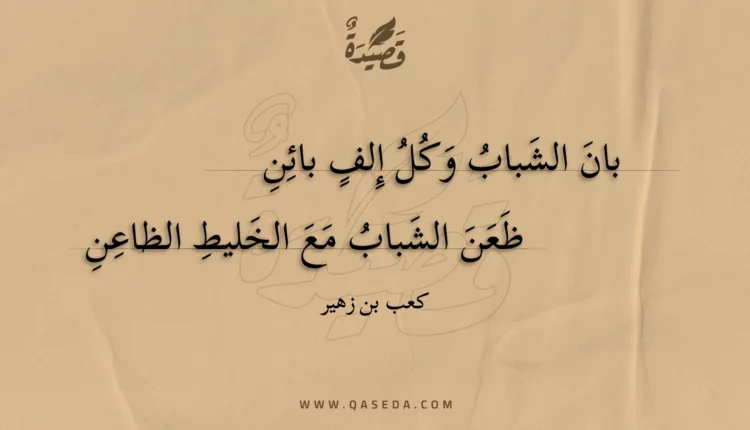 قَصِيْدَةٌ
بانَ الشَبابُ وَكُلُ إِلفٍ بائِنِ
ظَعَنَ الشَبابُ مَعَ الخَليطِ الظاعِنِ
كعب بن زهير
WWW.QASEDA.COM